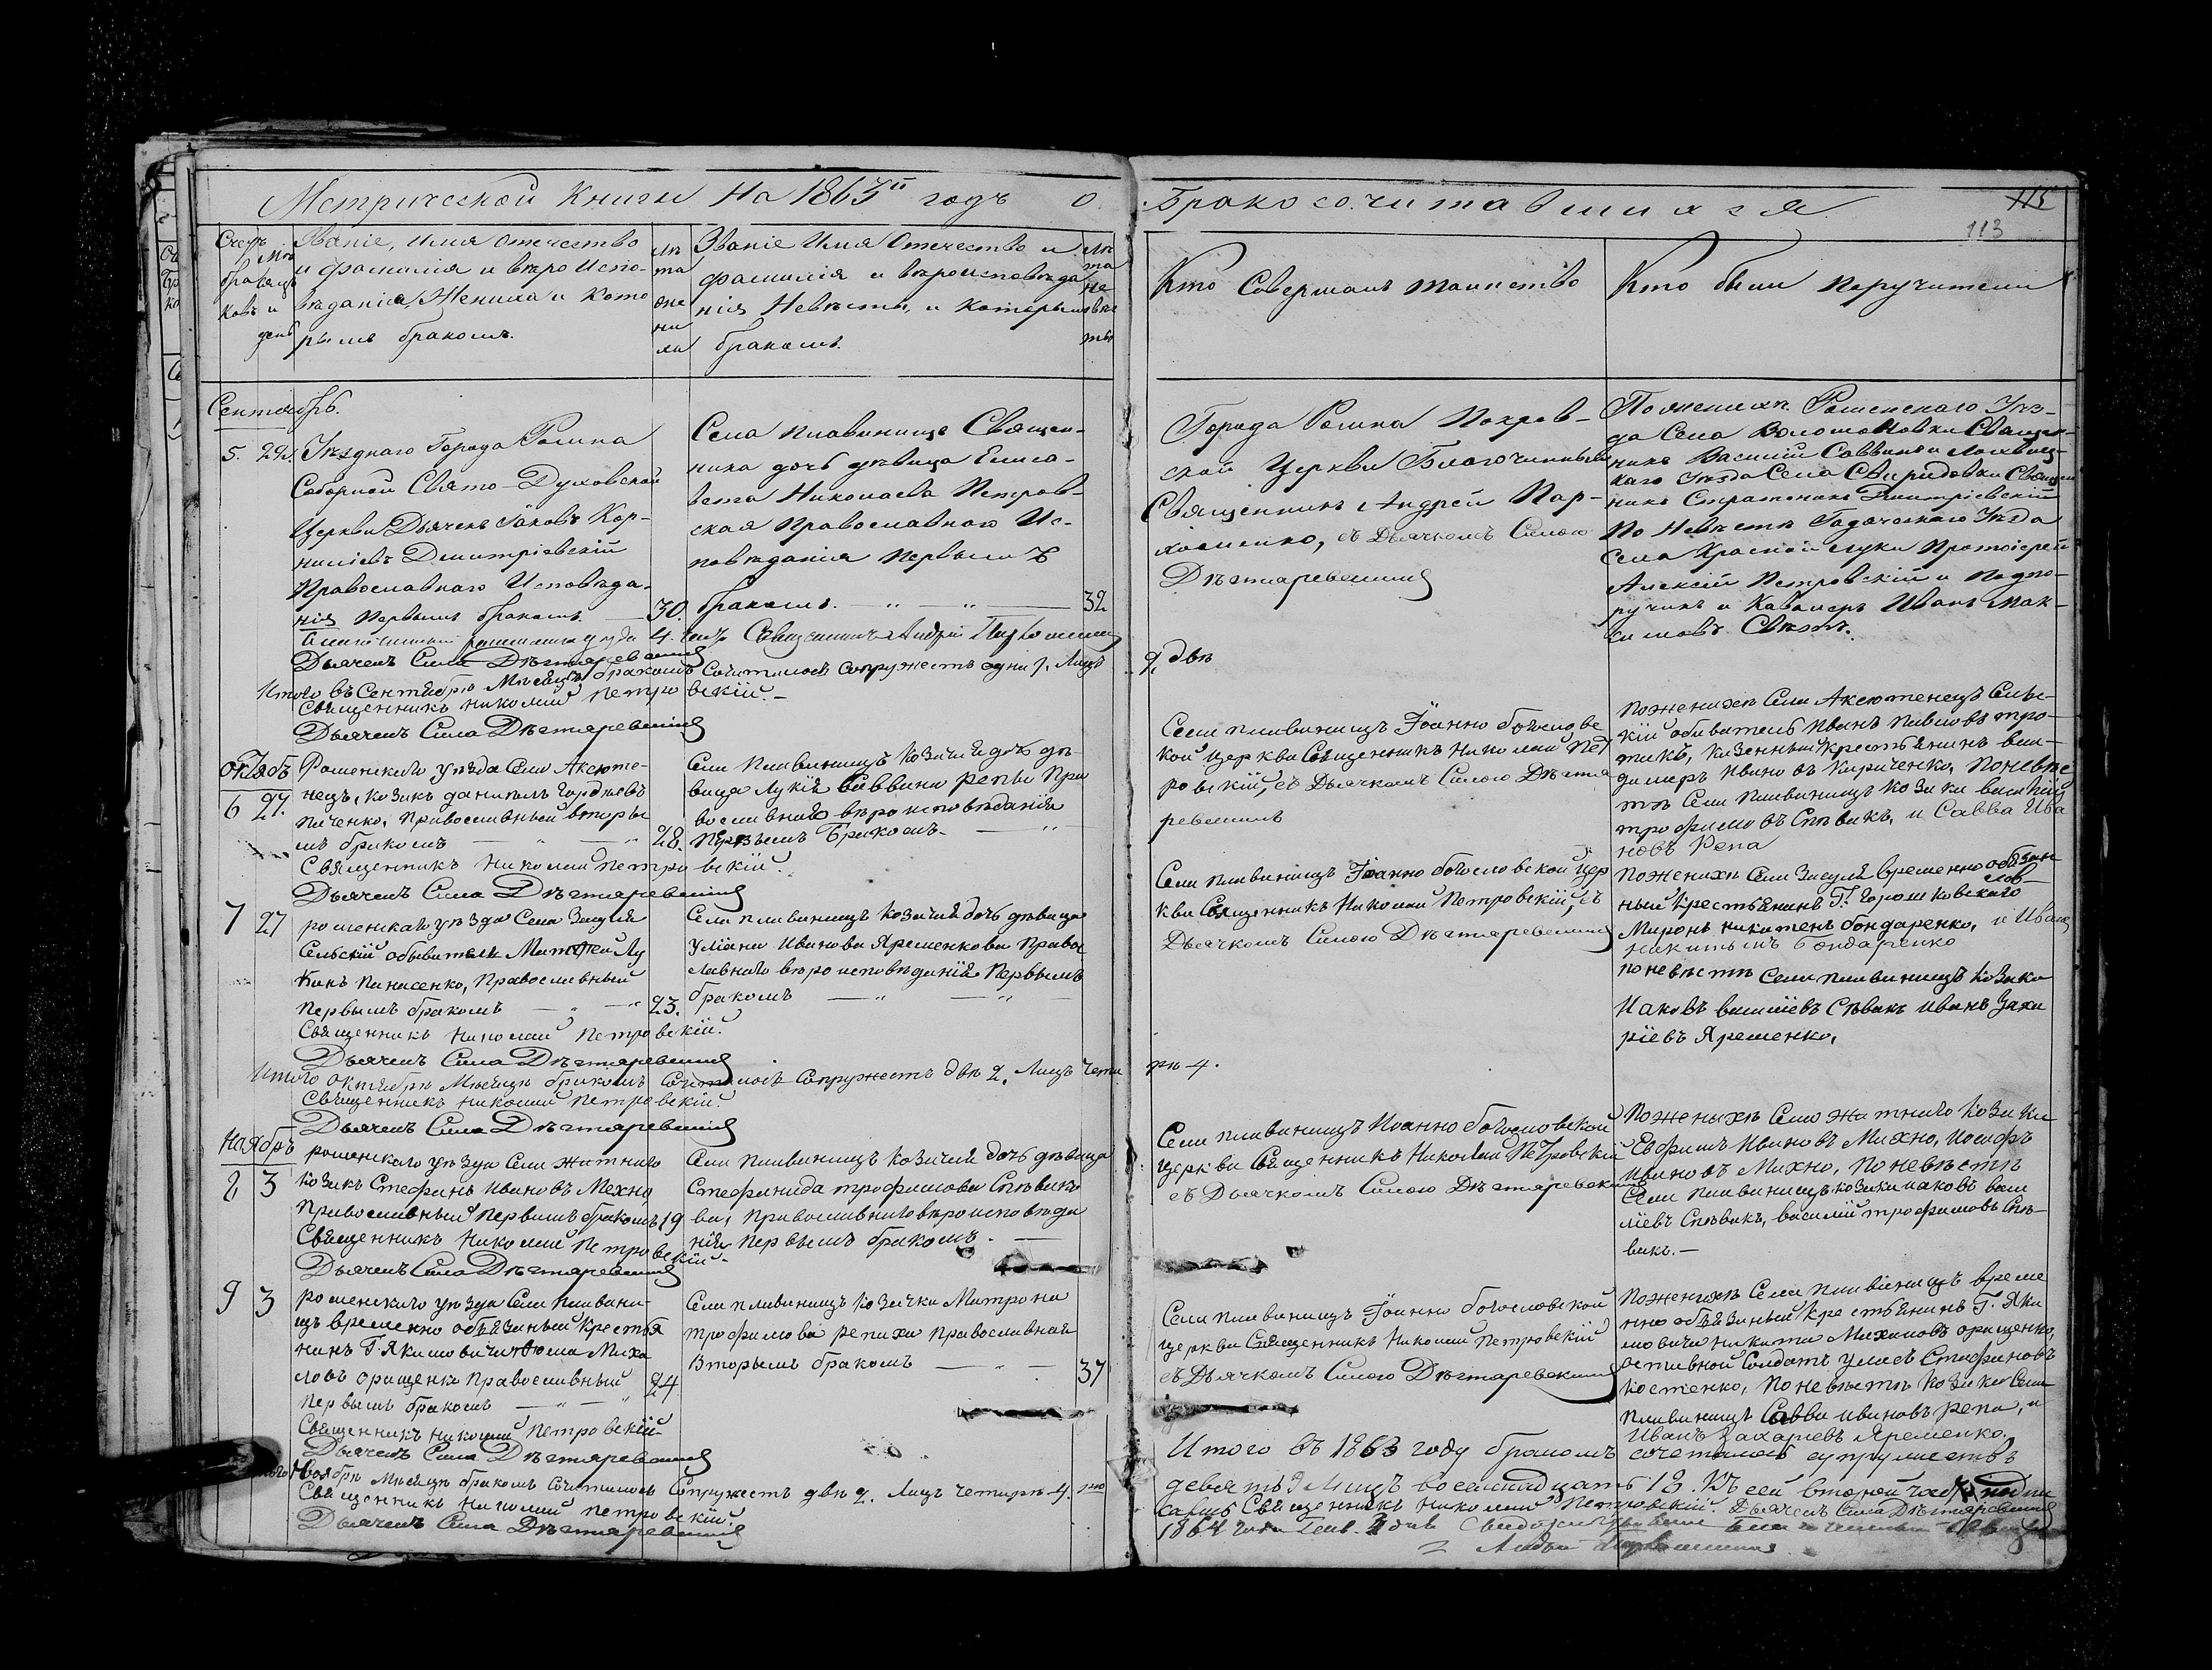 Метрической Книги На 1863й годъ о Бракосочитавшихся.
115
113
Счетъ браковъ
Мѣсяцъ и день
Званіе, имя отечество
и фамилія и вѣро Испо-
вѣданія Жениха и кото
рымъ бракомъ.
Лѣта жениха
Званіе Имя Отечество и
фамилія и вѣроисповѣда
нія Невѣсты, и которым
бракомъ.
Лѣта невѣсты
Кто Совершалъ таинство
Кто были поручители
Сентябрь.
5. 22.
Уѣзднаго Города Ромна
Соборной Свято-Духовской
Церкви Дьячекъ Іаковъ Кор-
нилієвъ Дмитріевскій
Православнаго Исповѣда-
нія первымъ бракомъ. 30.
Села Плавинище Священ-
ника дочь дѣвица Елиса-
вета Николаева Петров-
ская Православнаго Ис-
повѣданія первымъ
бракомъ. 32
Города Ромна Покров-
ской Церкви Благочинный
Священникъ Андрей Пар-
хоменко, съ Дьячкомъ Силою
Дѣхтяревскимъ
По женихѣ. Роменскаго Уѣз-
да Села Волошновки Священ-
никъ Василій Саввинъ и Лохвиц-
каго Уѣзда Села Свиридовки Священ
никъ Стратоникъ Дмитріевскій
По Невѣстѣ Гадячскаго Уѣзда
Села Красной луки Протоіерей
Алексій Петровскій и Подпо-
ручикъ и Кавалеръ Иванъ Мак-
симовъ Свѣтъ.
Священникъ Андрей Пархоменко
Дьячекъ Сила Дѣхтяревскій
Итого въ Сентябрѣ Мѣсяцѣ бракомъ Сочиталось Супружествъ одни 1. Лицъ 2, двѣ
Священникъ Николай Петровскій.
Дьячекъ Сила Дѣхтяревскій
Октябъ
6 27.
Роменскаго уѣзда Села Аксюте-
нецъ, козакъ Даніилъ Гордѣевъ
Православный вторы
мъ бракомъ 28.
Села Плавинищъ Козачая дочь дѣ-
вица Лукія Саввина Репы Пра
вославнаго вѣроисповѣданія
Первымъ Бракомъ.
Села Плавинищъ Іоанно богослове
кой церкви Священникъ Николай Пет
ровскій, съ Дьячкомъ Силою Дѣхтя
ревскимъ
По женихѣ Села Аксютенецъ Сельс-
кій обиватель Иванъ Павловъ тро-
тикъ, казенный крестьянинъ Вла-
димиръ Ивановъ Кириченко, По невѣс
тѣ Села Плавинищъ Козаки Василій
трофимовъ Спѣвакъ, и Савва Ива
новъ Репа
Священникъ Николай Петровскій.
Дьячекъ Сила Дѣхтяревскій
7 27
роменскаго уѣзда Села Засулья
Сельскій обыватель Матфей Лу
кинъ Панасенко, Православный
первымъ бракомъ 23.
Села Плавинищъ Козачая дочь дѣвица
Уліана Иванова Яременкова Правос
лавнаго вѣроисповѣданія Первымъ
бракомъ
Села Плавинищъ Іоанно богословской цер
кви Священникъ Николай Петровскій, съ
Дьячкомъ Силою Дѣхтяревскимъ
По женихѣ Села Засулья временно обязан
ный крестьянинъ Г.
Миронъ Никитенъ бондаренко, и Иванъ
Никитинъ Бондаренко
по невѣстѣ Села Плавинищъ Козаки
Иаковъ Василіевъ Спѣвакъ Иванъ Заха
ріевъ Яременко,
Священникъ Николай Петровскій.
Дьячекъ Сила Дѣхтяревскій
Итого Октябрѣ Мѣсяцѣ бракомъ Сочиталось Супружествъ двѣ 2, Лицъ четы рѣ 4.
Священникъ Николай Петровскій.
Дьячекъ Сила Дѣхтяревскій
Наябръ
8 3
роменскаго уѣзда Села Житнаго
козакъ Стефанъ Ивановъ Махно
православный первымъ бракомъ 19
Села Плавинищъ Козачая дочь дѣвица
Стефанида трофимова Спѣвако
ва, православнаго вѣроисповѣда
нія первымъ бракомъ.
Села Плавинищъ Иоанно богословской
церкви Священникъ Николай Петровскій
съ Дьячкомъ Силою Дѣхтяревскимъ
По женыхѣ Села Житнаго козаки
Евфимъ Ивановъ Махно, Иосифъ
Ивановъ Махно, По невѣстѣ
Села Плавинищъ козаки Иаковъ васи
ліевъ Спѣвакъ, василій трофимовъ Спѣ-
вакъ.
Священникъ Николай Петровскій
Дьячекъ Сила Дѣхтяревскій
9 3
роменскаго уѣзда Села Плавини-
щъ временно обязаный крестья
нинъ Г. Якимовича Фома Миха
ловъ Орищенко Православный
первымъ бракомъ 24
Села Плавинищъ Козачка Матрона
трофимова репиха православная
Вторымъ бракомъ 37
Села Плавинищъ Іоанно богословской
церкви Священникъ Николай Петровскій
съ Дьячкомъ Силою Дѣхтяревскимъ
По женихѣ Села Плавинищъ време
нно обязаный крестьянинъ Г. Яки
мовича Никита Михаловъ орищенко,
Солдатъ Стефановъ
Костенко, По невѣстѣ козаки Села
Плавинищъ Савва Ивановъ репа, и
Иванъ Захаріевъ Яременко.
Священникъ Николай Петровскій
Дьячекъ Сила Дѣхтяревскій
Ноябрѣ Мѣсяцѣ бракомъ Сочиталось Супружествъ двѣ 2. Лицъ четырѣ 4.
Священникъ Николай Петровскій.
Дьячекъ Сила Дѣхтяревскій
Итого въ 1863 году бракомъ сочеталось супружествъ
девять 9 Лицъ восемнадцать 18. Къ сей второй части подпи
сались Священникъ Николай Петровскій. Дьячекъ Сила Дѣхтяревскій
1864 года Генв.